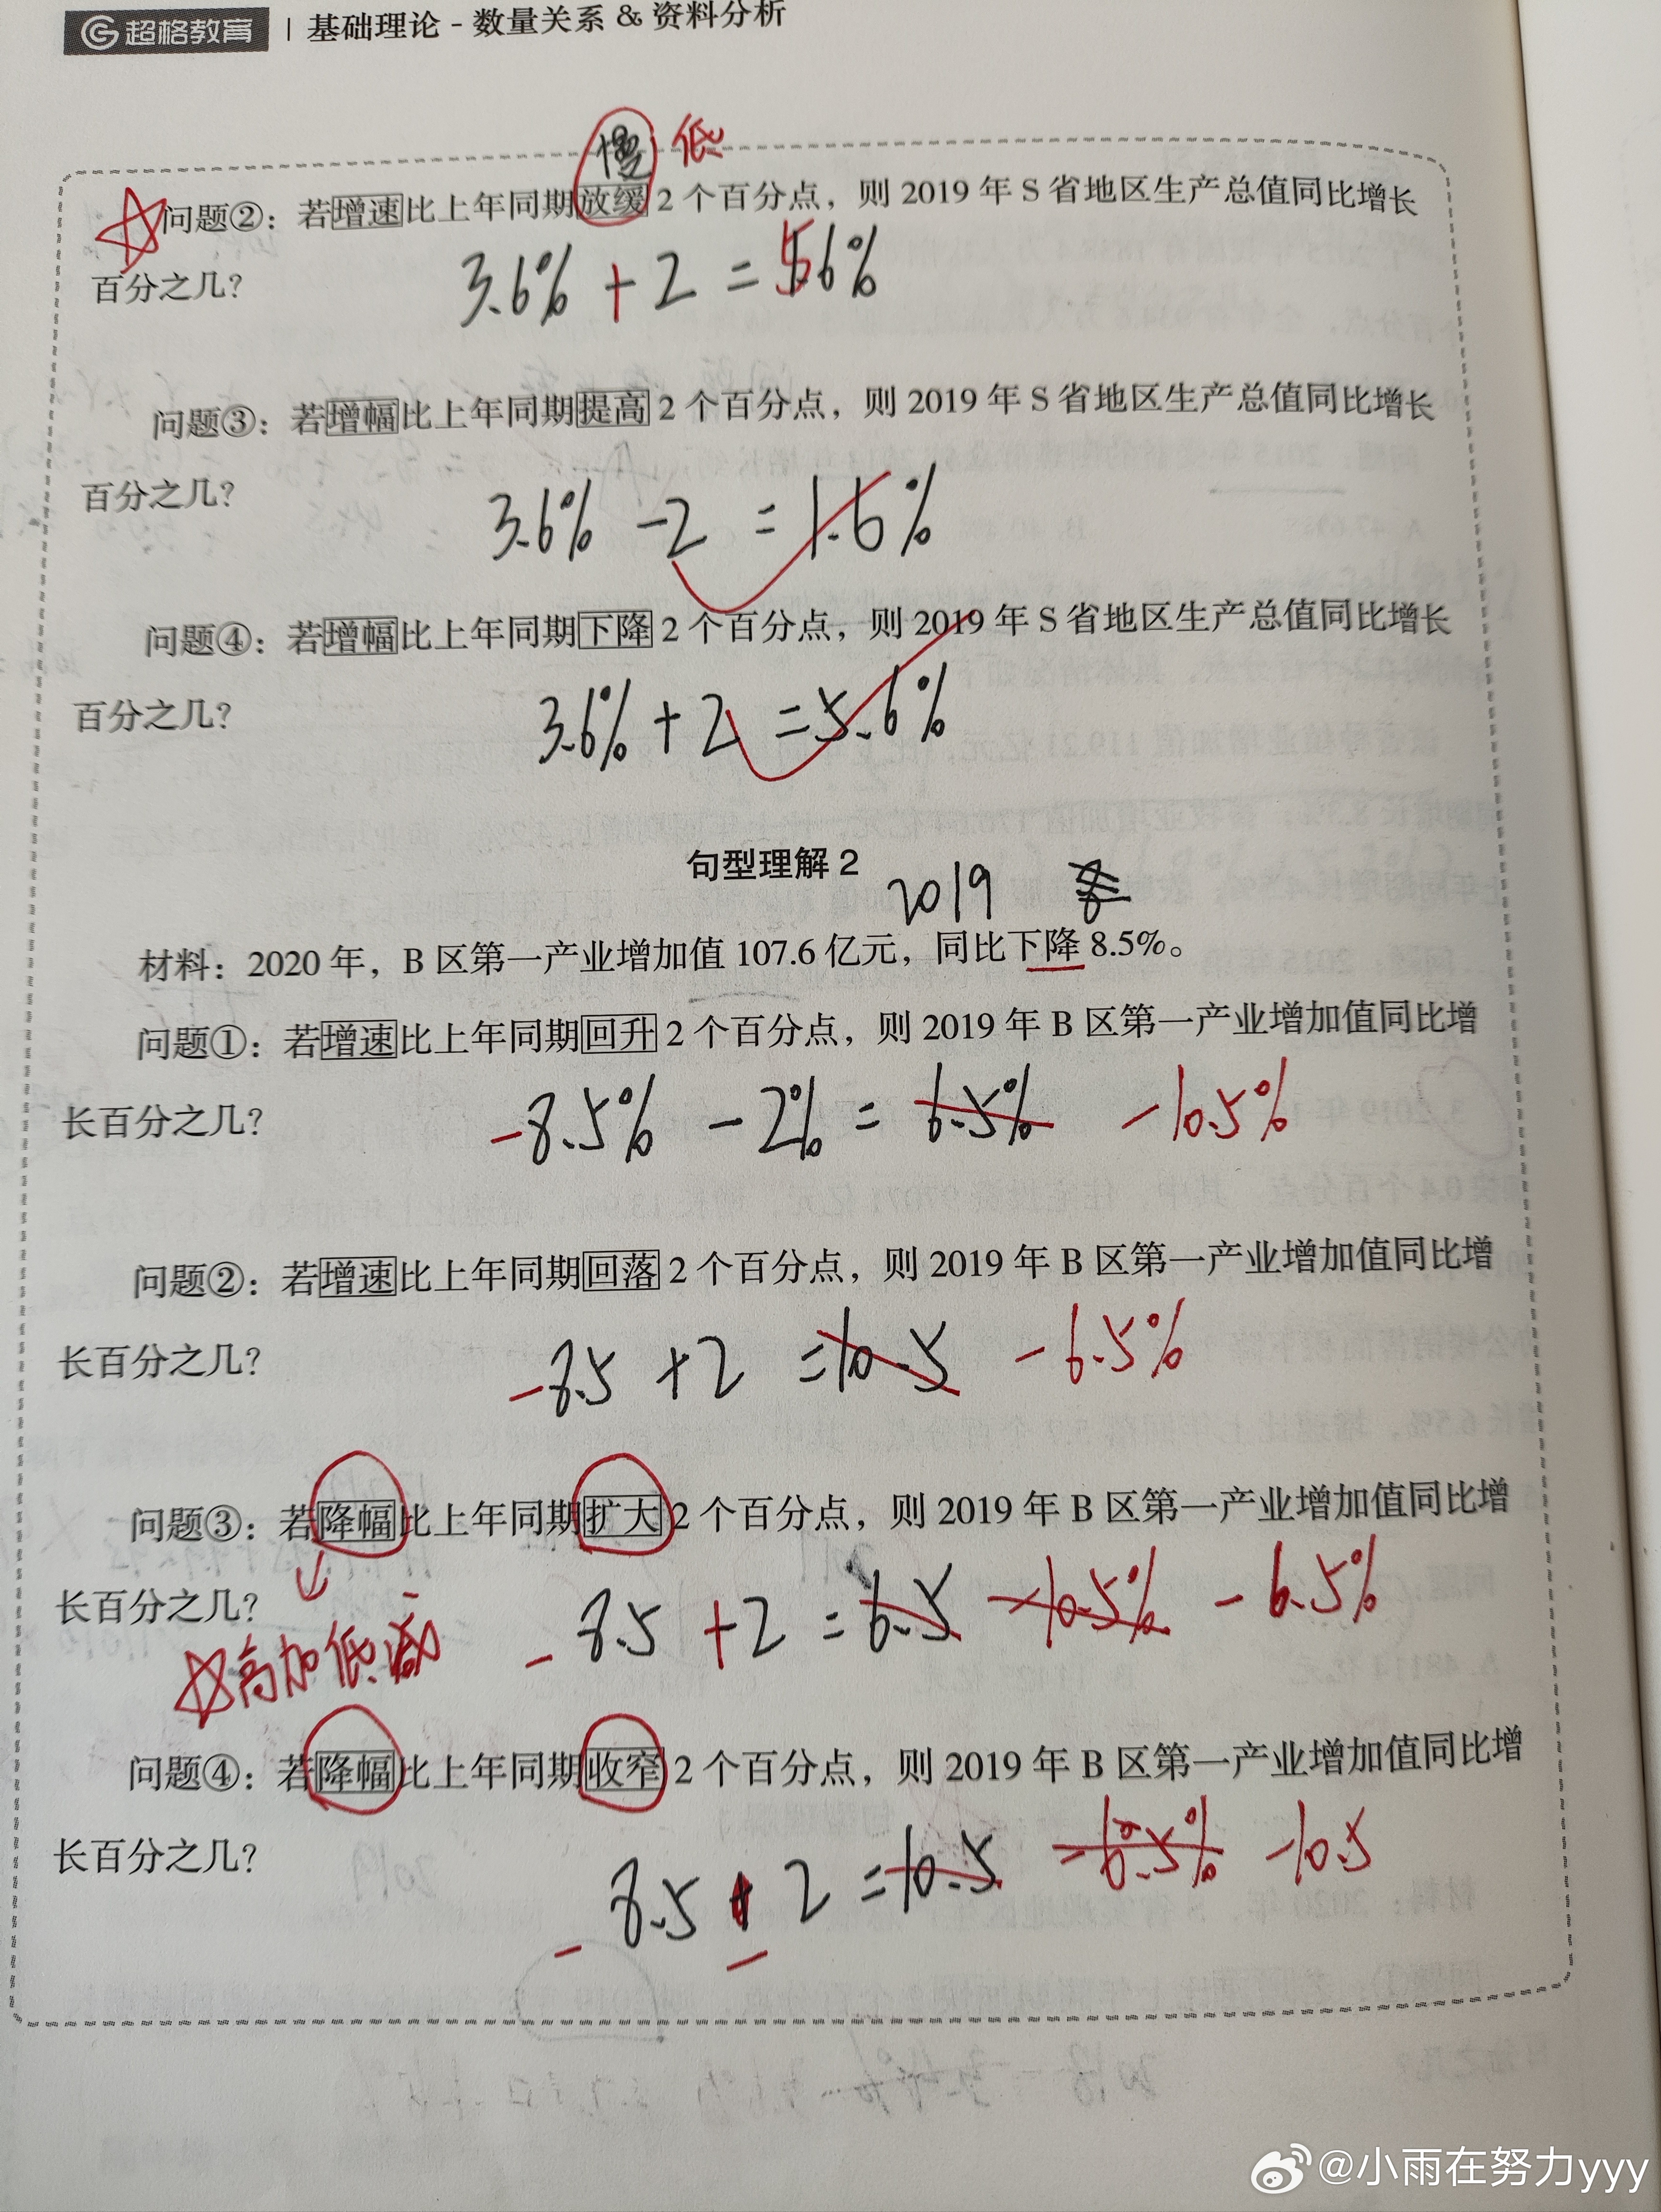 超格教育 | 基础理论 - 数量关系 & 资料分析
慢 低
问题②：若增速比上年同期放缓2个百分点，则2019年S省地区生产总值同比增长
百分之几？
3.6% + 2 = 5.6%
问题③：若增幅比上年同期提高2个百分点，则2019年S省地区生产总值同比增长
百分之几？
3.6% - 2 = 1.6%
问题④：若增幅比上年同期下降2个百分点，则2019年S省地区生产总值同比增长
百分之几？
3.6% + 2 = 5.6%
句型理解2
2019
材料：2020年，B区第一产业增加值107.6亿元，同比下降8.5%。
问题①：若增速比上年同期回升2个百分点，则2019年B区第一产业增加值同比增
长百分之几？
-8.5% - 2% = 6.5% -10.5%
问题②：若增速比上年同期回落2个百分点，则2019年B区第一产业增加值同比增
长百分之几？
-8.5 + 2 = 10.5 -6.5%
问题③：若降幅比上年同期扩大2个百分点，则2019年B区第一产业增加值同比增
长百分之几？
-8.5 + 2 = 6.5 -10.5% -6.5%
高加低减
问题④：若降幅比上年同期收窄2个百分点，则2019年B区第一产业增加值同比增
长百分之几？
-8.5 - 2 = 10.5 -6.5% -10.5
@小雨在努力yyy